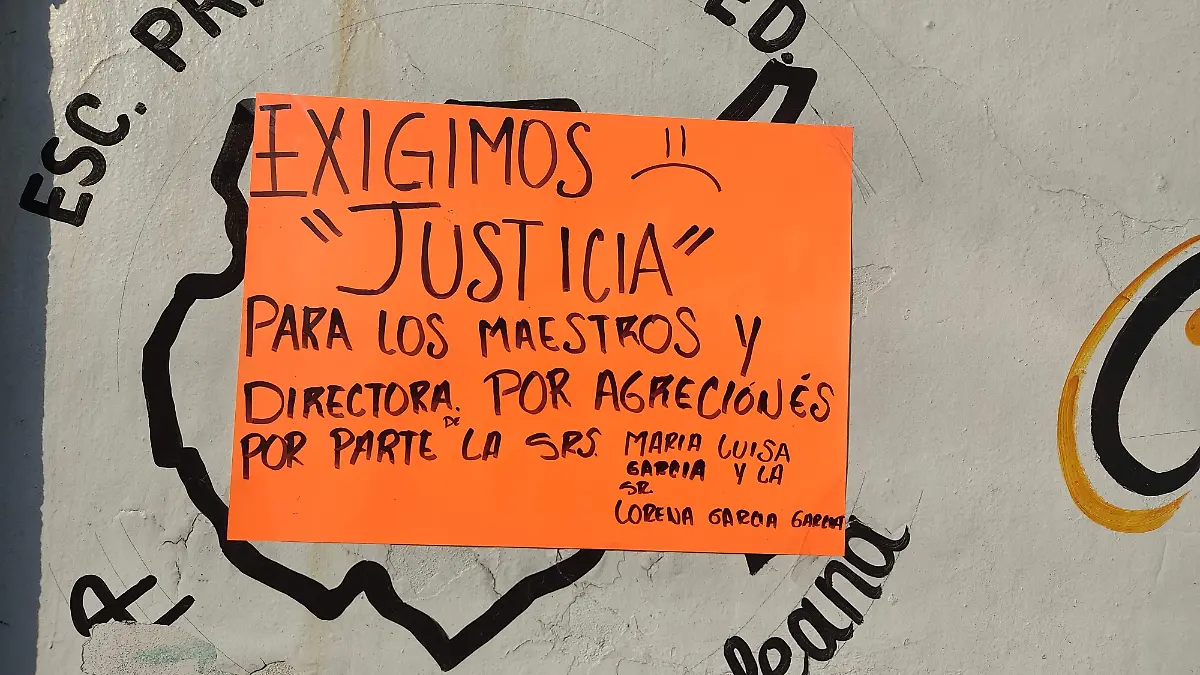 ESC. PRI
ED.
EXIGIMOS
"JUSTICIA"
PARA LOS MAESTROS Y
DIRECTORA. POR AGRECIÓNÉS
POR PARTE DE LA SRS. MARIA LUISA
GARCIA Y LA
SR.
LORENA GARCIA GARCIA
leana